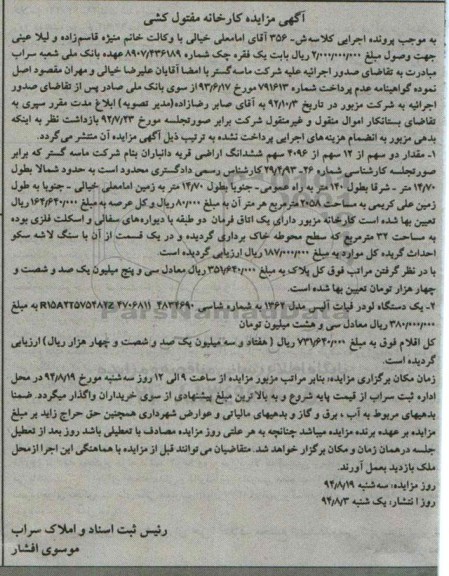 آگهی مزایده کارخانه مفتول کشی
به موجب پرونده اجرایی کلاسه ش- ۳۵۶ آقای امامعلی خیالی با وکالت خانم منیژه قاسم زاده و لیلا عینی
جهت وصول مبلغ ۲/۰۰۰/۰۰۰/۰۰۰ ریال بابت یک فقره چک شماره ۸۹۰۷/۴۳۶۱۸۹ عهده بانک ملی شعبه سراب
مبادرت به تقاضای صدور اجرائیه علیه شرکت ماسه گستر با امضا آقایان علیرضا خیالی و مهران مقصود اصل
نموده گواهینامه عدم پرداخت شماره ۷۹۱۶۱۳ مورخ ۹۳/۶/۱۷ از سوی بانک ملی صادر پس از تقاضای صدور
اجرائیه به شرکت مزبور در تاریخ ۹۲/۱۰/۳ به آقای صابر رضازاده(مدیر تصویه) ابلاغ مدت مقرر سپری به
تقاضای بستانکار اموال منقول و غیرمنقول شرکت برابر صورتجلسه مورخ ۹۲/۷/۲۳ بازداشت نظر به اینکه
بدهی مزبور به انضمام هزینه های اجرایی پرداخت نشده به ترتیب ذیل آگهی مزایده آن منتشر می گردد.
۱- مقدار دو سهم از ۱۲ سهم از ۴۰۹۶ سهم ششدانگ اراضی قریه دانباران بنام شرکت ماسه گستر که برابر
صورتجلسه کارشناسی شماره ۲۹۲/۹۳-۴ کارشناس رسمی دادگستری محدود است به حدود شمالا بطول
۱۴/۷۰ متر - شرقا بطول ۱۴۰ متر به راه عمومی- جنوبا بطول ۱۴/۷۰ متر به زمین امامعلی خیالی - جنوبا به طول
زمین علی کریمی به مساحت ۲۰۵۸ مترمربع هر متر آن به مبلغ ۸۰/۰۰۰ ریال و کل عرصه به مبلغ ۱۶۴/۶۴۰/۰۰۰ ریال
تعیین بها شده است کارخانه مزبور دارای یک اتاق فرمان دو طبقه با دیوارهای سفالی و اسکلت فلزی بوده
به مساحت ۳۲ مترمربع که سطح محوطه خاک برداری گردیده و در یک قسمت از آن با سنگ لاشه سکو
احداث گریده کل موارد به مبلغ ۱۸۷/۰۰۰/۰۰۰ ریال ارزیابی گردیده است.
با در نظر گرفتن مراتب فوق کل پلاک به مبلغ ۳۵۱/۶۴۰/۰۰۰ ریال معادل سی و پنج میلیون یک صد و شصت و
چهار هزار تومان تعیین بها شده است.
۲- یک دستگاه لودر فیات آلیس مدل ۱۳۶۴ به شماره شاسی ۲۸۳۴۶۹۰ ۴۷۰۶۸۱۱ R15A2T575287Z به مبلغ
۳۸۰/۰۰۰/۰۰۰ ریال معادل سی و هشت میلیون تومان
کل اقلام فوق به مبلغ ۷۳۱/۶۴۰/۰۰۰ ریال ( هفتاد و سه میلیون یک صد و شصت و چهار هزار ریال) ارزیابی
گردیده است.
زمان مکان برگزاری مزایده: بنابر مراتب مزبور مزایده از ساعت ۹ الی ۱۲ روز سه شنبه مورخ ۹۴/۸/۱۹ در محل
اداره ثبت سراب از قیمت پایه شروع و به بالاترین مبلغ پیشنهادی از سوی خریداران واگذار میگردد. ضمنا
بدهیهای مربوط به آب ، برق و گاز و بدهیهای مالیاتی و عوارض شهرداری همچنین حق حراج زاید بر مبلغ
مزایده بر عهده برنده مزایده میباشد چنانچه به هر علتی روز مزایده مصادف با تعطیلی باشد روز بعد از تعطیل
جلسه در همان زمان و مکان برگزار خواهد شد. متقاضیان می توانند قبل از مزایده با هماهنگی این اجرا از محل
ملک بازدید بعمل آورند.
روز مزایده: سه شنبه ۹۴/۸/۱۹
روز انتشار: یک شنبه ۹۴/۸/۳
رئیس ثبت اسناد و املاک سراب
موسوی افشار
ParsNamadData